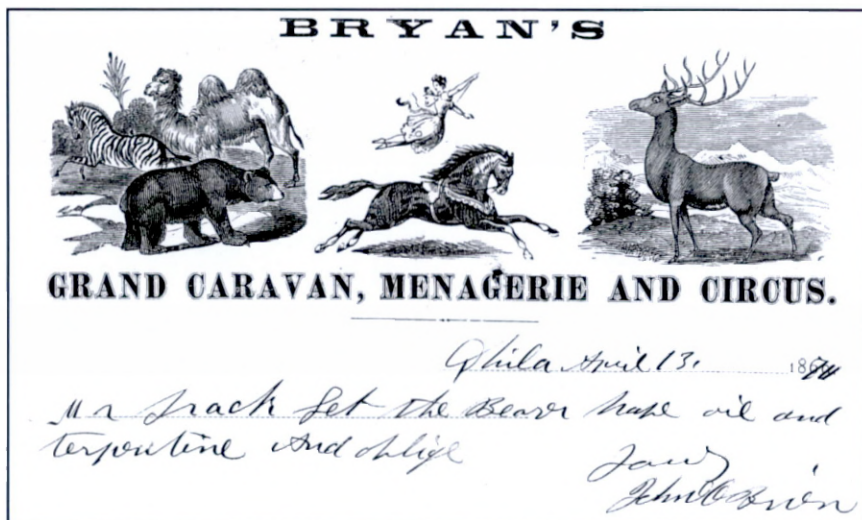 BRYAN'S
GRAND CARAVAN, MENAGERIE AND CIRCUS.
Phila April 13. 18671
Mr let the Bearer have oil and
terpentine and oblige
John O Brien